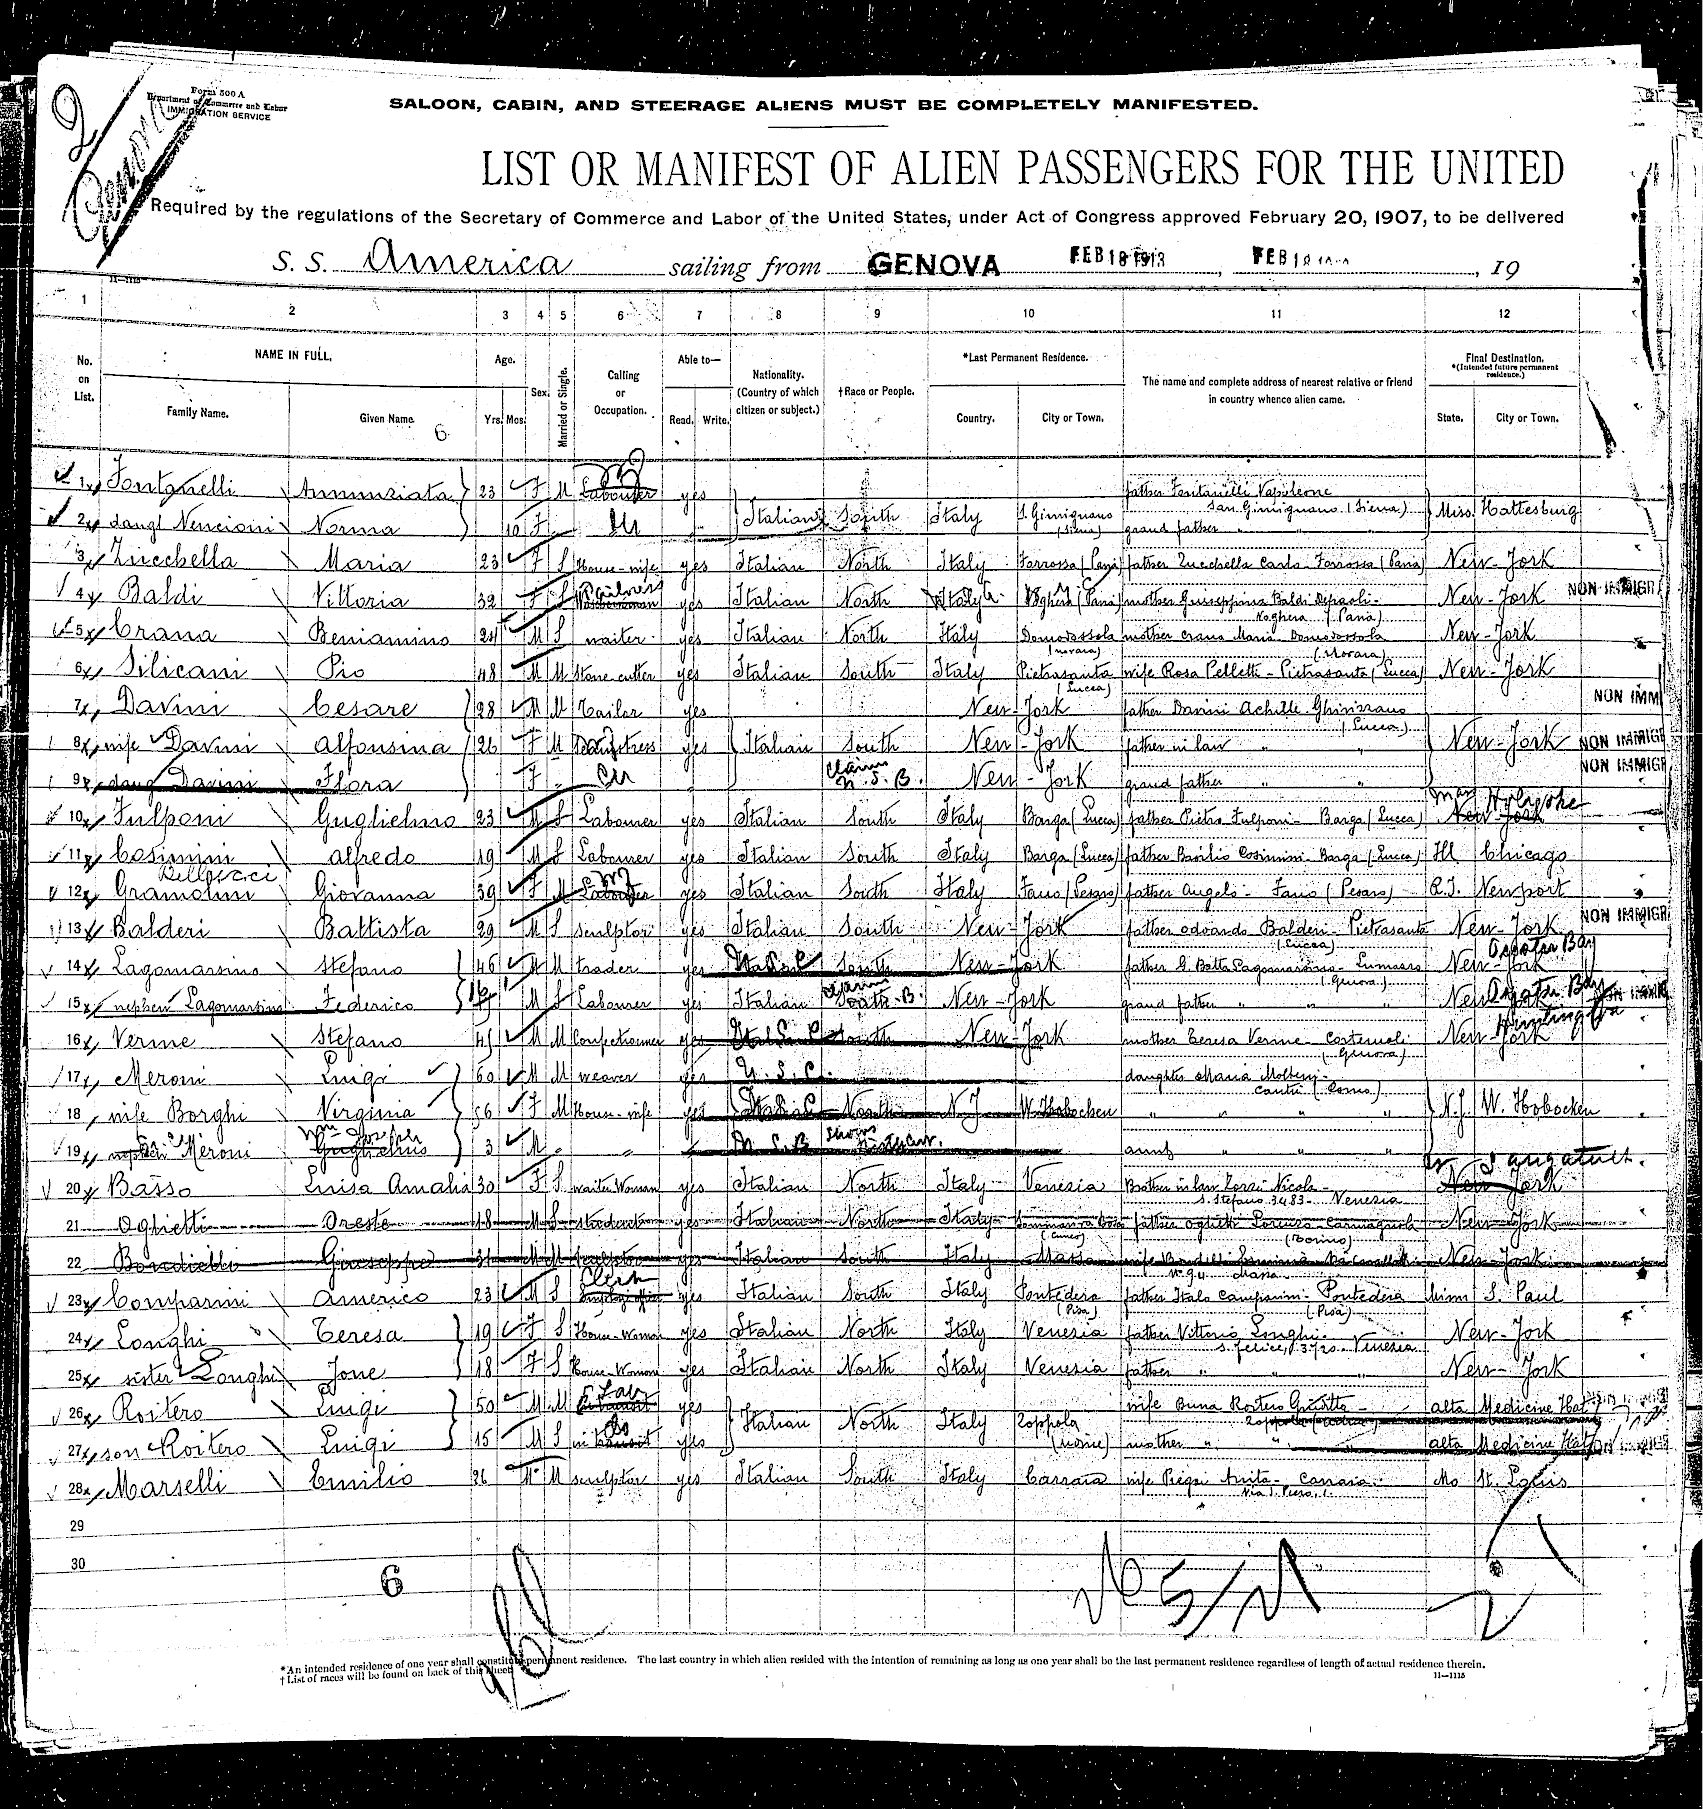 2
Form 500 A
Department of Commerce and Labor
IMMIGRATION SERVICE
SALOON, CABIN, AND STEERAGE ALIENS MUST BE COMPLETELY MANIFESTED.
LIST OR MANIFEST OF ALIEN PASSENGERS FOR THE UNITED
Required by the regulations of the Secretary of Commerce and Labor of the United States, under Act of Congress approved February 20, 1907, to be delivered
S. S. America sailing from GENOVA FEB 18 1913 , FEB 18 , 19
1 2 3 4 5 6 7 8 9 10 11 12
No. on List. NAME IN FULL. Family Name. Given Name. Age. Yrs. Mos. Sex. Married or Single. Calling or Occupation. Able to— Read. Write. Nationality. (Country of which citizen or subject.) †Race or People. *Last Permanent Residence. Country. City or Town. The name and complete address of nearest relative or friend in country whence alien came. Final Destination. *(Intended future permanent residence.) State. City or Town.
6
1 Annunziata 23 F M Labourer yes father Napoleone
San Gimignano (Siena)
2 daugt Nencioni Norma 10 F Italian South Italy S. Gimignano (Siena) grand father " Miss. Hattesburg
3 Zucchella Maria 23 F S House-wife yes Italian North Italy father Zucchella Carlo New-York
4 Baldi Vittoria 32 F S yes Italian North Italy Voghera mother Giuseppina Baldi New-York NON IMMIGR
Voghera (Pavia)
5 Crana Beniamino 24 M S waiter yes Italian North Italy Domodossola mother Crana Maria Domodossola New-York
(Novara) (Novara)
6 Silicani Pio 48 M M Stone cutter yes Italian South Italy Pietrasanta wife Rosa Pelletti - Pietrasanta (Lucca) New-York
(Lucca)
7 Davini Cesare 28 M M Tailor yes New-York father Davini Achille NON IMM
(Lucca)
8 wife Davini Alfonsina 26 F M yes Italian South New-York father in law " " New-York NON IMMIGR
9 daug Davini Flora F Claims U. S. B. New-York grand father " " NON IMMIGR
10 Fulponi Guglielmo 23 M S Labourer yes Italian South Italy Barga (Lucca) father Pietro Fulponi Barga (Lucca) Mass Holyoke New York
11 Cosimini Alfredo 19 M S Labourer yes Italian South Italy Barga (Lucca) father Basilio Cosimini - Barga (Lucca) Ill Chicago
12 Gramolini Giovanna 39 F M Labourer yes Italian South Italy Fano (Pesaro) father Angelo - Fano (Pesaro) R.I. Newport
13 Balderi Battista 29 M S sculptor yes Italian South New-York father Odoardo Balderi - Pietrasanta New-York NON IMMIGR
(Lucca)
14 Lagomarsino Stefano 46 M M trader yes South New-York father G. Batta Lagomarsino - New-York Oyster Bay
(Genova)
15 nephew Lagomarsino Federico 16 M S Labourer yes Italian South New-York grand father " " New York Oyster Bay
16 Verme Stefano 45 M M Confectioner yes South New-York mother Teresa Verme New-York
(Genova)
17 Meroni Luigi 60 M M weaver yes U. S. C. daughter Maria Molteni
Cantù (Como)
18 wife Borghi Virginia 56 F M House-wife yes North N.J W. Hobocken " " " " N.J. W. Hobocken
19 Meroni Wm Joseph Guglielmo 3 M " U. S. B aunt " " "
20 Basso Luisa Amalia 30 F S waiter Woman yes Italian North Italy Venezia Brother in law Zorzi Nicola New York
S. Stefano 3483 - Venezia
21 Oglietti Oreste 18 M S student yes Italian North Italy father Oglietti Lorenzo Carmagnola New-York
(Cuneo) (Torino)
22 Giuseppe 31 M M sculptor yes Italian South Italy Massa wife New-York
Massa
23 Comparini Americo 23 M S Clerk yes Italian South Italy Pontedera father Italo Comparini - Pontedera Minn S. Paul
(Pisa) (Pisa)
24 Longhi Teresa 19 F S House-Woman yes Italian North Italy Venezia father Vittorio Longhi New-York
S. Felice, 3720 - Venezia
25 sister Longhi Jone 18 F S House-Woman yes Italian North Italy Venezia father " " New-York
26 Roitero Luigi 50 M M yes wife Anna Roitero Alta Medicine Hat
27 son Roitero Luigi 15 M S in transit yes Italian North Italy Zoppola (Udine) mother " " Alta Medicine Hat
28 Marselli Emilio 26 M M sculptor yes Italian South Italy Carrara wife Anita - Carrara Mo St. Louis
29
30
6
*An intended residence of one year shall constitute permanent residence. The last country in which alien resided with the intention of remaining as long as one year shall be the last permanent residence regardless of length of actual residence therein.
† List of races will be found on back of this sheet.
11—1115